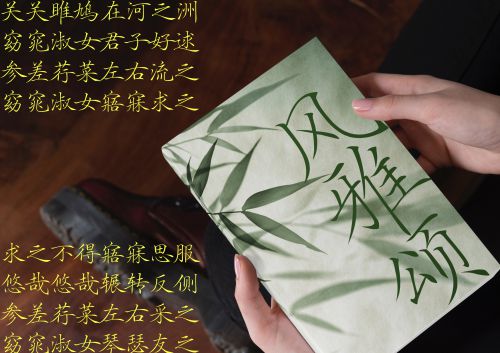 关关雎鸠在河之洲
窈窕淑女君子好逑
参差荇菜左右流之
窈窕淑女寤寐求之
风雅颂
求之不得寤寐思服
悠哉悠哉辗转反侧
参差荇菜左右采之
窈窕淑女琴瑟友之